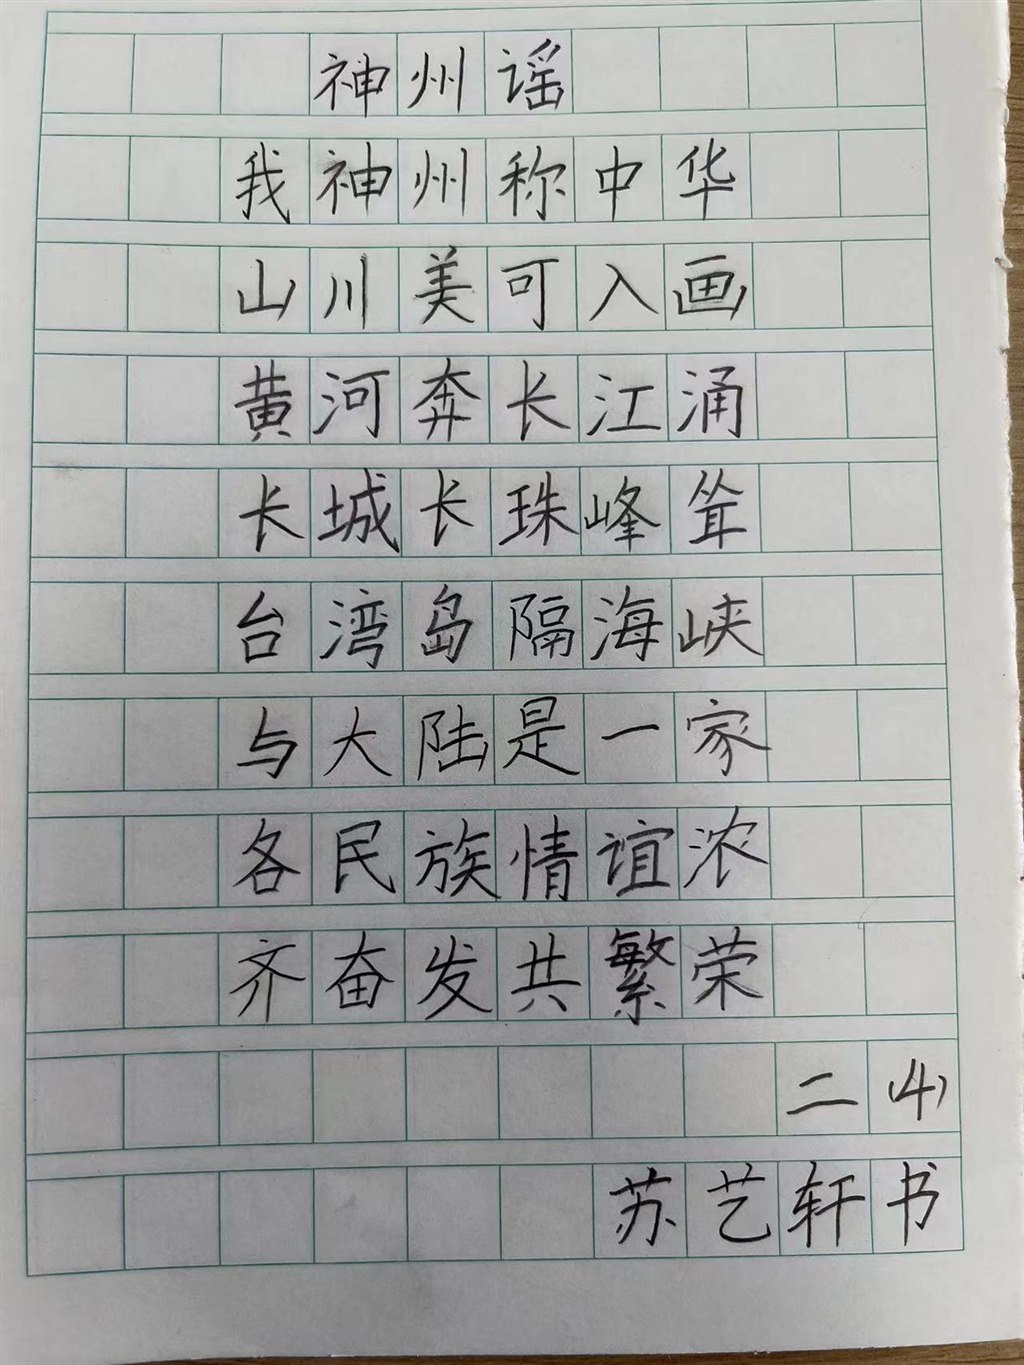 神州谣
我神州称中华
山川美可入画
黄河奔长江涌
长城长珠峰耸
台湾岛隔海峡
与大陆是一家
各民族情谊浓
齐奋发共繁荣
二(4)
苏艺轩书